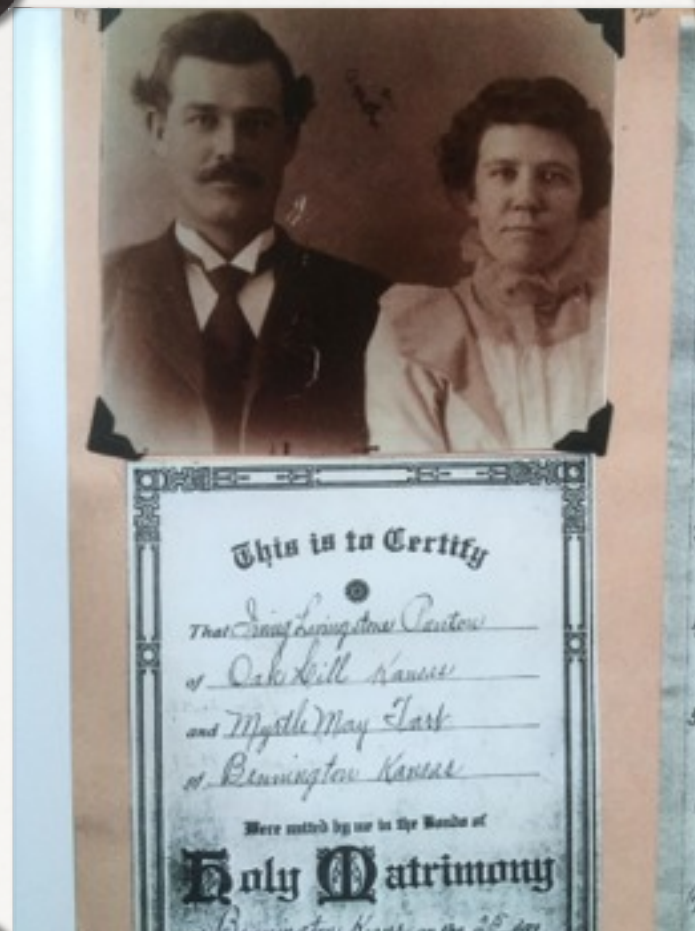 This is to Certify
That Irving Livingstone Panton
of Oak Hill Kansas
and Myrtle May Tart
of Bennington Kansas
Were united by me in the Bonds of
Holy Matrimony
Bennington Kans on the 25 day